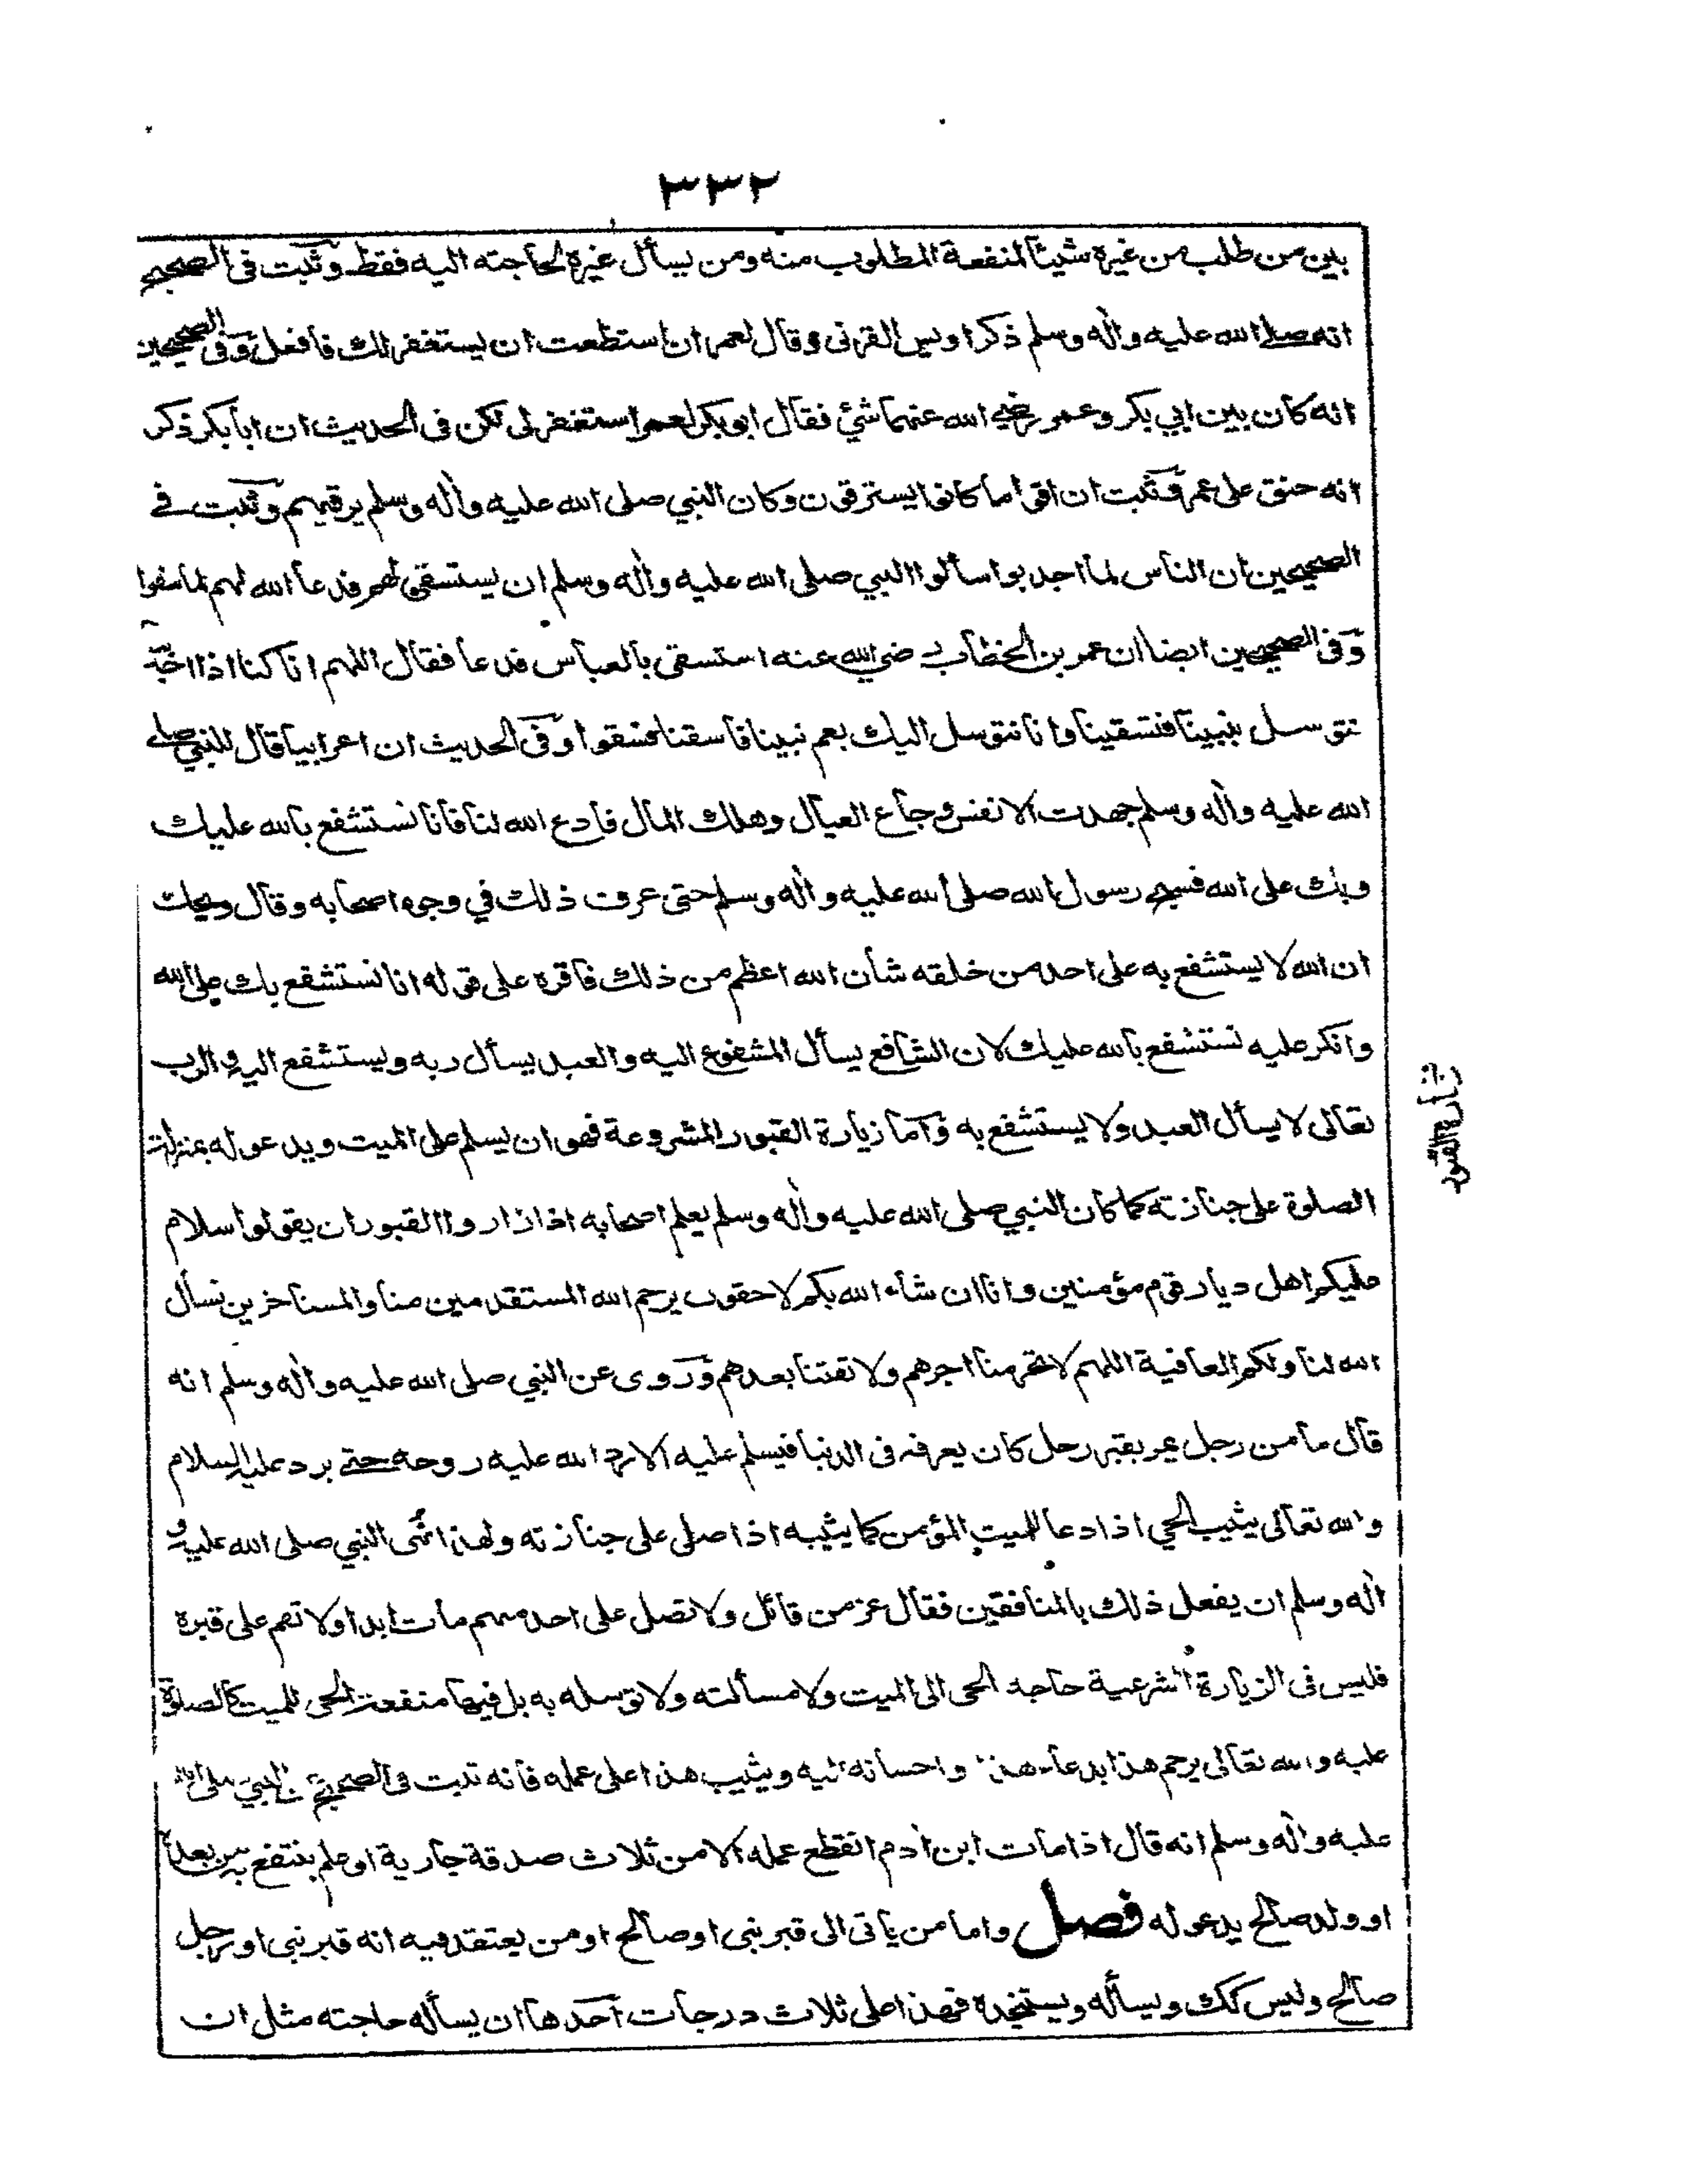 ٣٣٢
بين من طلب من غيره شيئاً لمنفعة المطلوب منه ومن يسأل غيره لحاجته اليه فقط وثبت فى الصحيح
انه صلى الله عليه واله وسلم ذكر اويس القرنى وقال لعمر ان استطعت ان يستغفر لك فافعل وفى الصحيحين
انه كان بين ابي بكر وعمر رضي الله عنهما شئ فقال ابو بكر لعمر استغفر لى لكن فى الحديث ان ابا بكر ذكر
انه حنق على عمر وثبت ان اقواما كانوا يسترقون وكان النبي صلى الله عليه واله وسلم يرقيهم وثبت فے
الصحيحين ان الناس لما اجدبوا سألوا النبي صلى الله عليه واله وسلم ان يستسقى لهم فدعا الله لهم فاسقوا
وفى الصحيحين ايضا ان عمر بن الخطاب رضي الله عنه استسقى بالعباس فدعا فقال اللهم انا كنا اذا
نتوسل بنبينا فتسقينا وانا نتوسل اليك بعم نبينا فاسقنا فسقوا وفى الحديث ان اعرابيا قال للنبي صلے
الله عليه واله وسلم جهدت الانفس وجاع العيال وهلك المال فادع الله لنا فانا نستشفع بالله عليك
وبك على الله فسبح رسول الله صلى الله عليه واله وسلم حتى عرف ذلك في وجوه اصحابه وقال ويحك
ان الله لا يستشفع به على احد من خلقه شأن الله اعظم من ذلك فاقره على قوله انا نستشفع بك على الله
وانكر عليه نستشفع بالله عليك لان الشافع يسأل المشفوع اليه والعبد يسأل ربه ويستشفع اليه والرب
تعالى لا يسأل العبد ولا يستشفع به وآما زيارة القبور المشروعة فهو ان يسلم على الميت ويدعو له بمنزلة
زيارة القبور
الصلوة على جنازته كما كان النبي صلى الله عليه واله وسلم يعلم اصحابه اذا زاروا القبور ان يقولوا سلام
عليكم اهل ديار قوم مؤمنين وانا ان شاء الله بكم لاحقون يرحم الله المستقدمين منا والمستأخرين نسأل
الله لنا ولكم العافية اللهم لا تحرمنا اجرهم ولا تفتنا بعدهم وروى عن النبي صلى الله عليه واله وسلم انه
قال ما من رجل يمر بقبر رجل كان يعرفه فى الدنيا فيسلم عليه الا رد الله عليه روحه حتے يرد عليه السلام
والله تعالى يثيب الحي اذا دعا للميت المؤمن كما يثيبه اذا صلى على جنازته ولهذا نهى النبي صلى الله عليه و
اله وسلم ان يفعل ذلك بالمنافقين فقال عز من قائل ولا تصل على احد منهم مات ابدا ولا تقم على قبره
فليس فى الزيارة الشرعية حاجة الحى الى الميت ولا مسألته ولا توسله به بل فيها منفعة الحى للميت كالصلوة
عليه والله تعالى يرحم هذا بدعاء هذا واحسانه اليه ويثيب هذا على عمله فانه ثبت فى الصحيح عن النبي صلى الله
عليه واله وسلم انه قال اذا مات ابن ادم انقطع عمله الا من ثلاث صدقة جارية او علم ينتفع به من بعده
او ولد صالح يدعو له فصل واما من يأتى الى قبر نبى او صالح او من يعتقد فيه انه قبر نبى او رجل
صالح وليس كك ويسأله ويستنجده فهذا على ثلاث درجات آحدها ان يسأله حاجته مثل ان